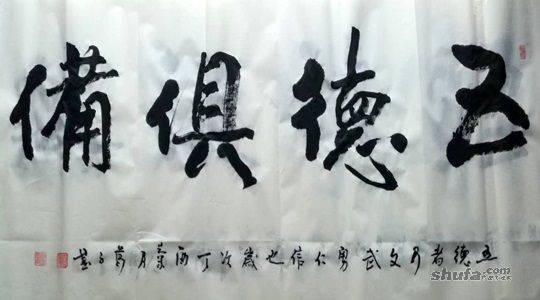 五德俱備
五德者乃文武勇仁信也歲次丁酉月
shufa.com